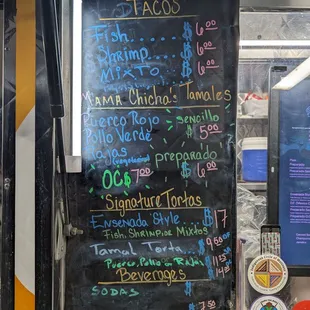 TACOS
Fish.... $6.00
Shrimp... $6.00
MIXTO..... $6.00
MAMA Chicha's Tamales
Puerco Rojo sencillo
Pollo Verde $5.00
Rajas preparado
(vegetarian) $6.00
OC$ 7.00
Signature Tortas
Ensenada Style... $17
Fish, Shrimp or Mixtos
Tamal Torta... $9.50
Puerco, Pollo or Rajas
Beverages
SODAS